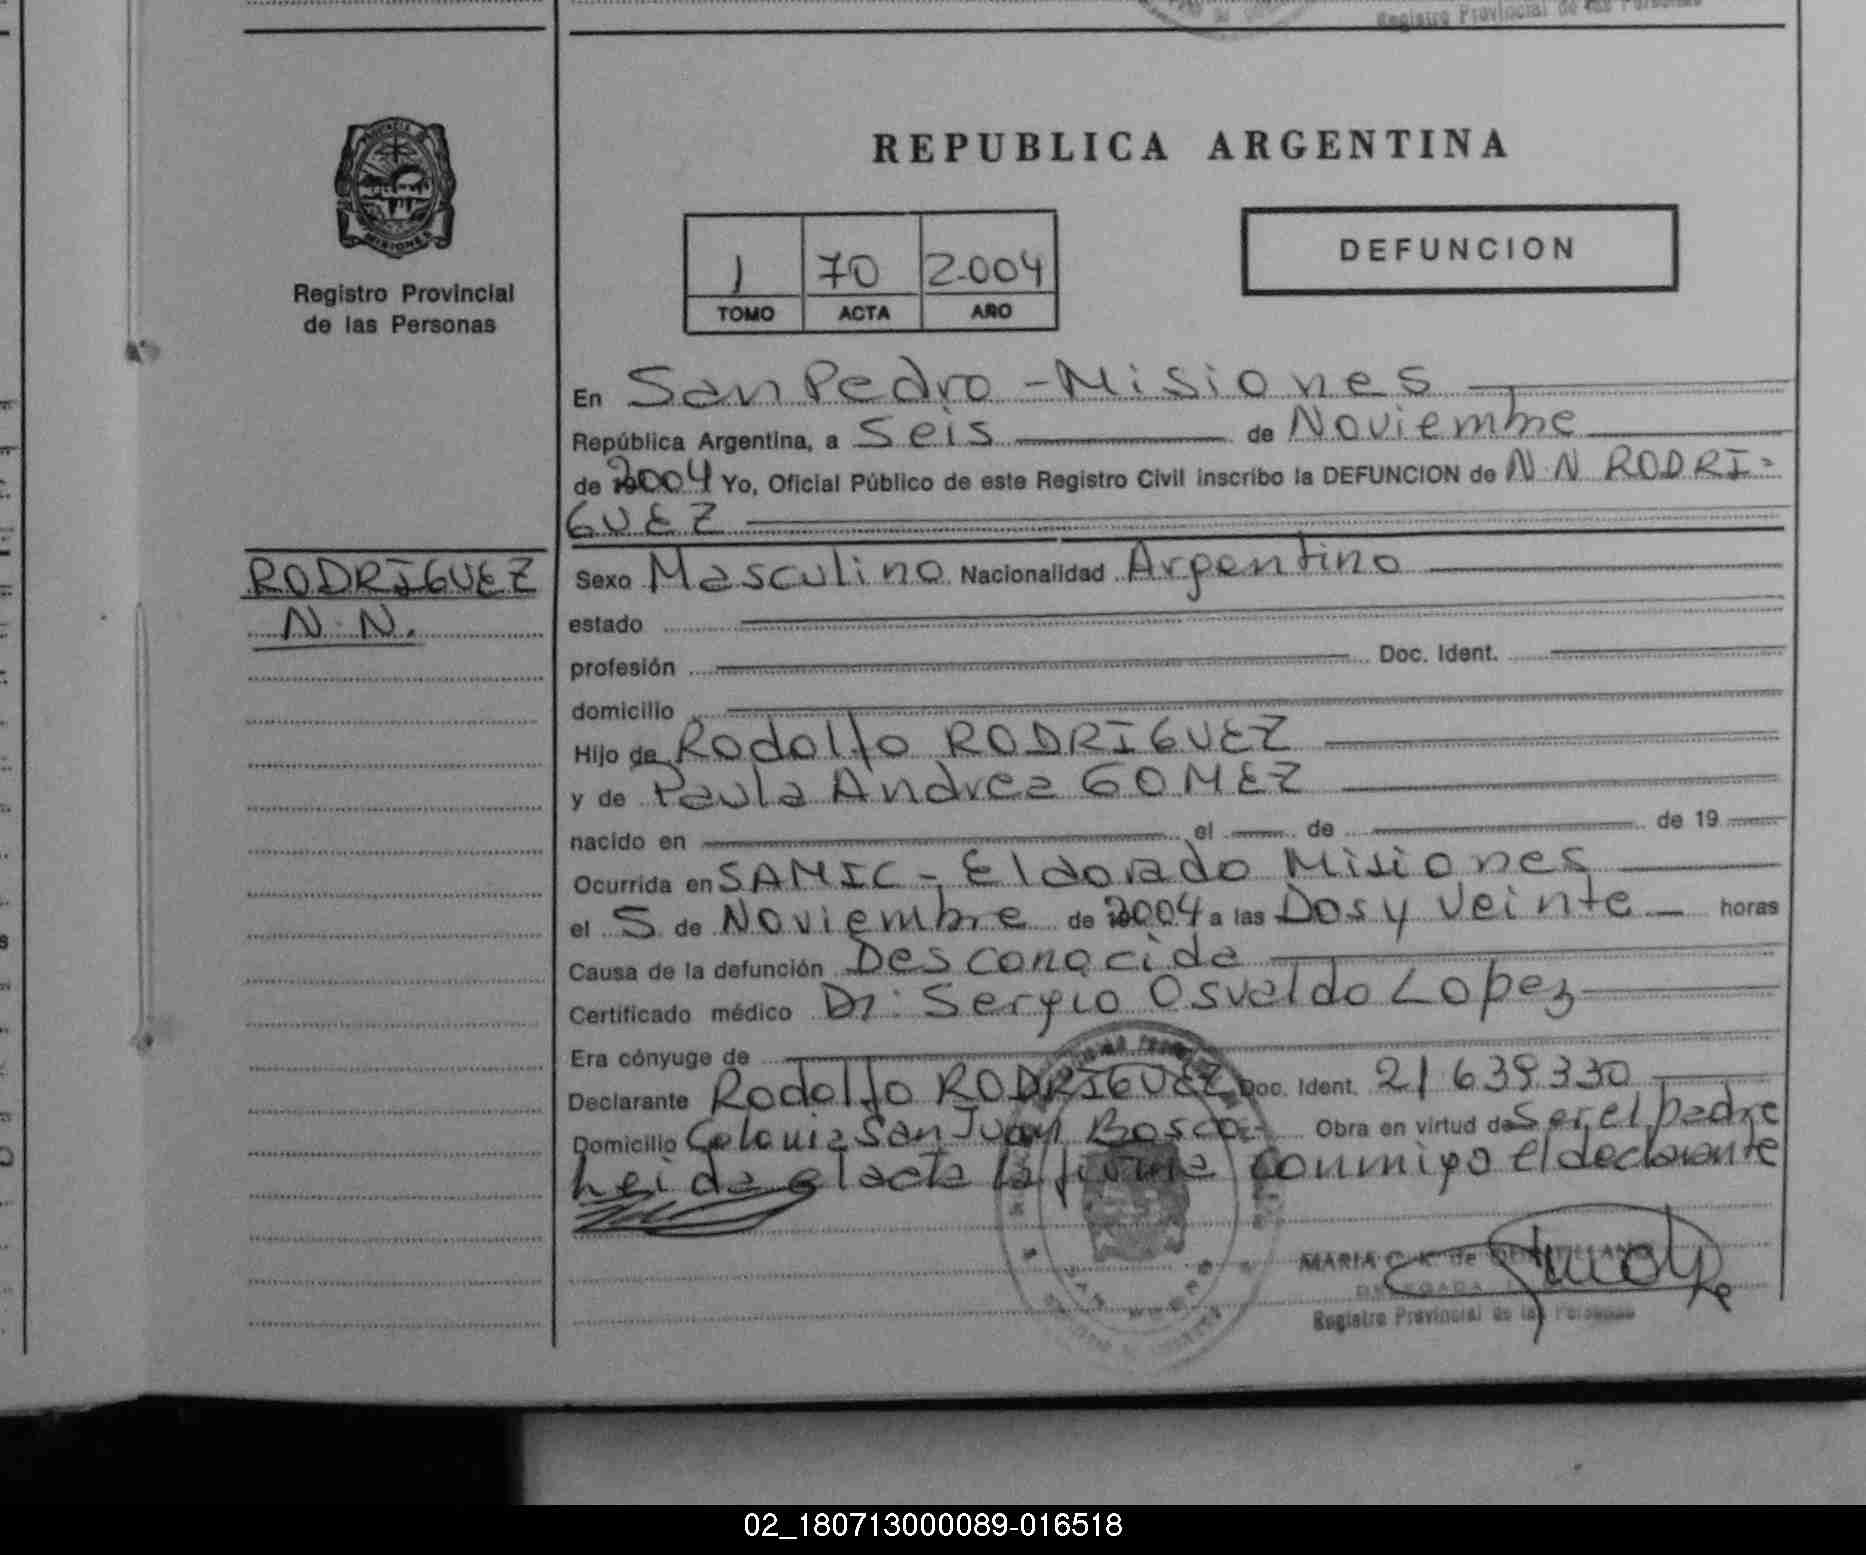 Registro Provincial de las Personas
REPUBLICA ARGENTINA
MISIONES
Registro Provincial
de las Personas
1 70 2004
TOMO ACTA AÑO
DEFUNCION
En San Pedro - Misiones
República Argentina, a Seis de Noviembre
de 2004 Yo, Oficial Público de este Registro Civil inscribo la DEFUNCION de N N RODRI-
GUEZ
RODRIGUEZ
N. N.
Sexo Masculino Nacionalidad Argentino
estado
profesión Doc. Ident.
domicilio
Hijo de Rodolfo RODRIGUEZ
y de Paula Andrea GOMEZ
nacido en el de de 19
Ocurrida en SAMIC - Eldorado Misiones
el 5 de Noviembre de 2004 a las Dos y Veinte horas
Causa de la defunción Desconocida
Certificado médico Dr: Sergio Osvaldo Lopez
Era cónyuge de
Declarante Rodolfo RODRIGUEZ Doc. Ident. 21 639330
Domicilio Colonia San Juan Bosco Obra en virtud de Ser el padre
Leida el acta la firma conmigo el declarante
MARIA C. K. de
DELEGADA
Registro Provincial de las Personas
02_180713000089-016518